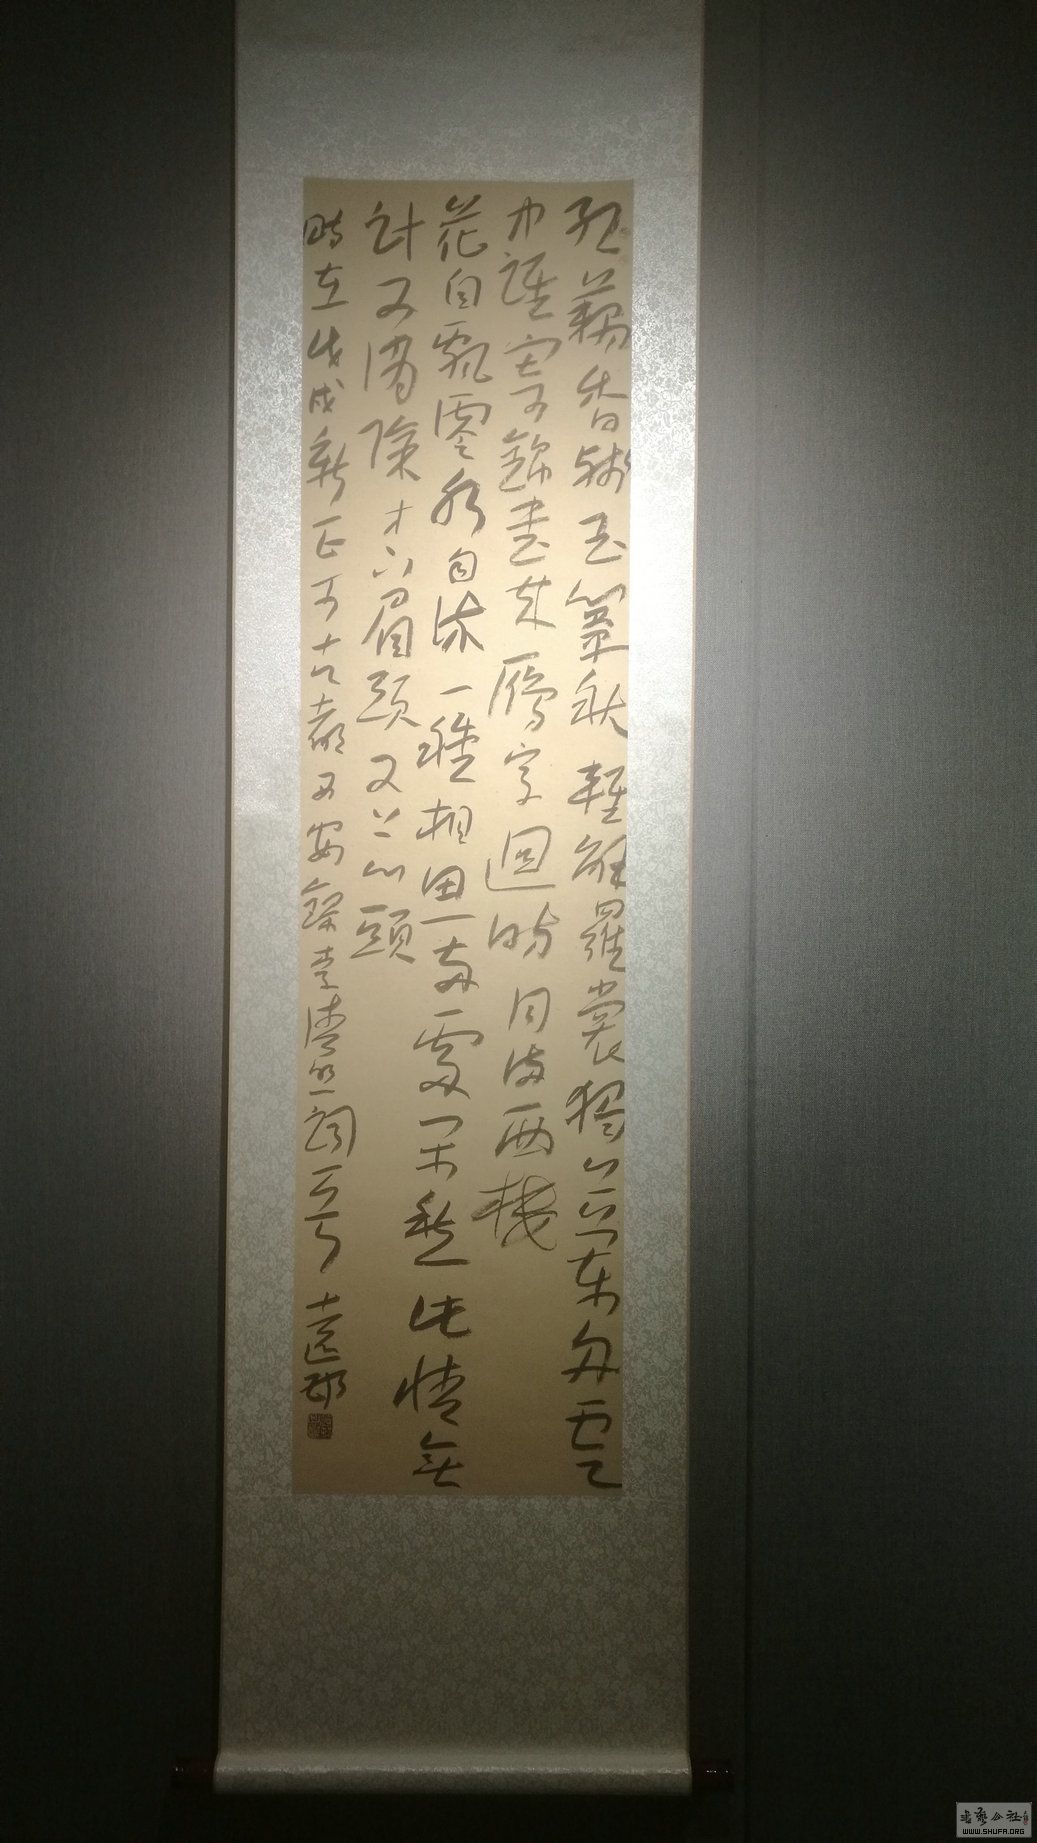 紅藕香殘玉簟秋輕解羅裳獨上蘭舟雲
中誰寄錦書來雁字回時月滿西樓
花自飄零水自流一種相思兩處閑愁此情無
計可消除才下眉頭又上心頭
時在戊戌新正于古都西安錄李清照詞一首
書藝公社
WWW.SHUFA.ORG